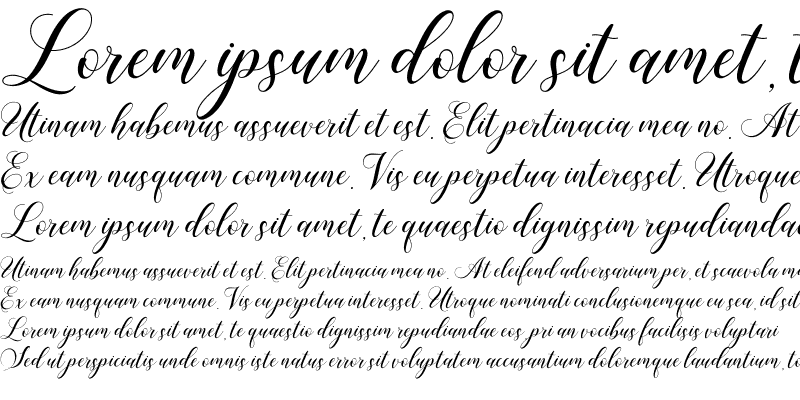 Lorem ipsum dolor sit amet, t
Utinam habemus assueverit et est. Elit pertinacia mea no. At
Ex eam nusquam commune. Vis eu perpetua interesset. Utroque
Lorem ipsum dolor sit amet, te quaestio dignissim repudiandae
Utinam habemus assueverit et est. Elit pertinacia mea no. At eleifend adversarium per, et scaevola m
Ex eam nusquam commune. Vis eu perpetua interesset. Utroque nominati conclusionemque eu sea, id sit
Lorem ipsum dolor sit amet, te quaestio dignissim repudiandae eos, pri an vocibus facilisis voluptari
Sed ut perspiciatis unde omnis iste natus error sit voluptatem accusantium doloremque laudantium, to